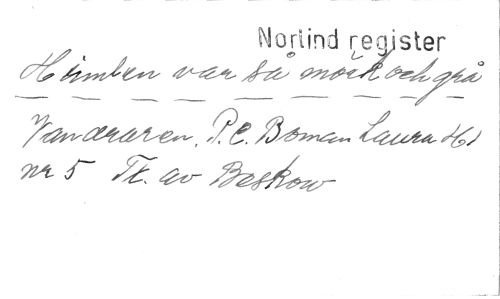 Norlind register
Himlen var så mörk och grå
Vandraren. P. C. Boman Laura H)
nr 5 Tx. av Beskow